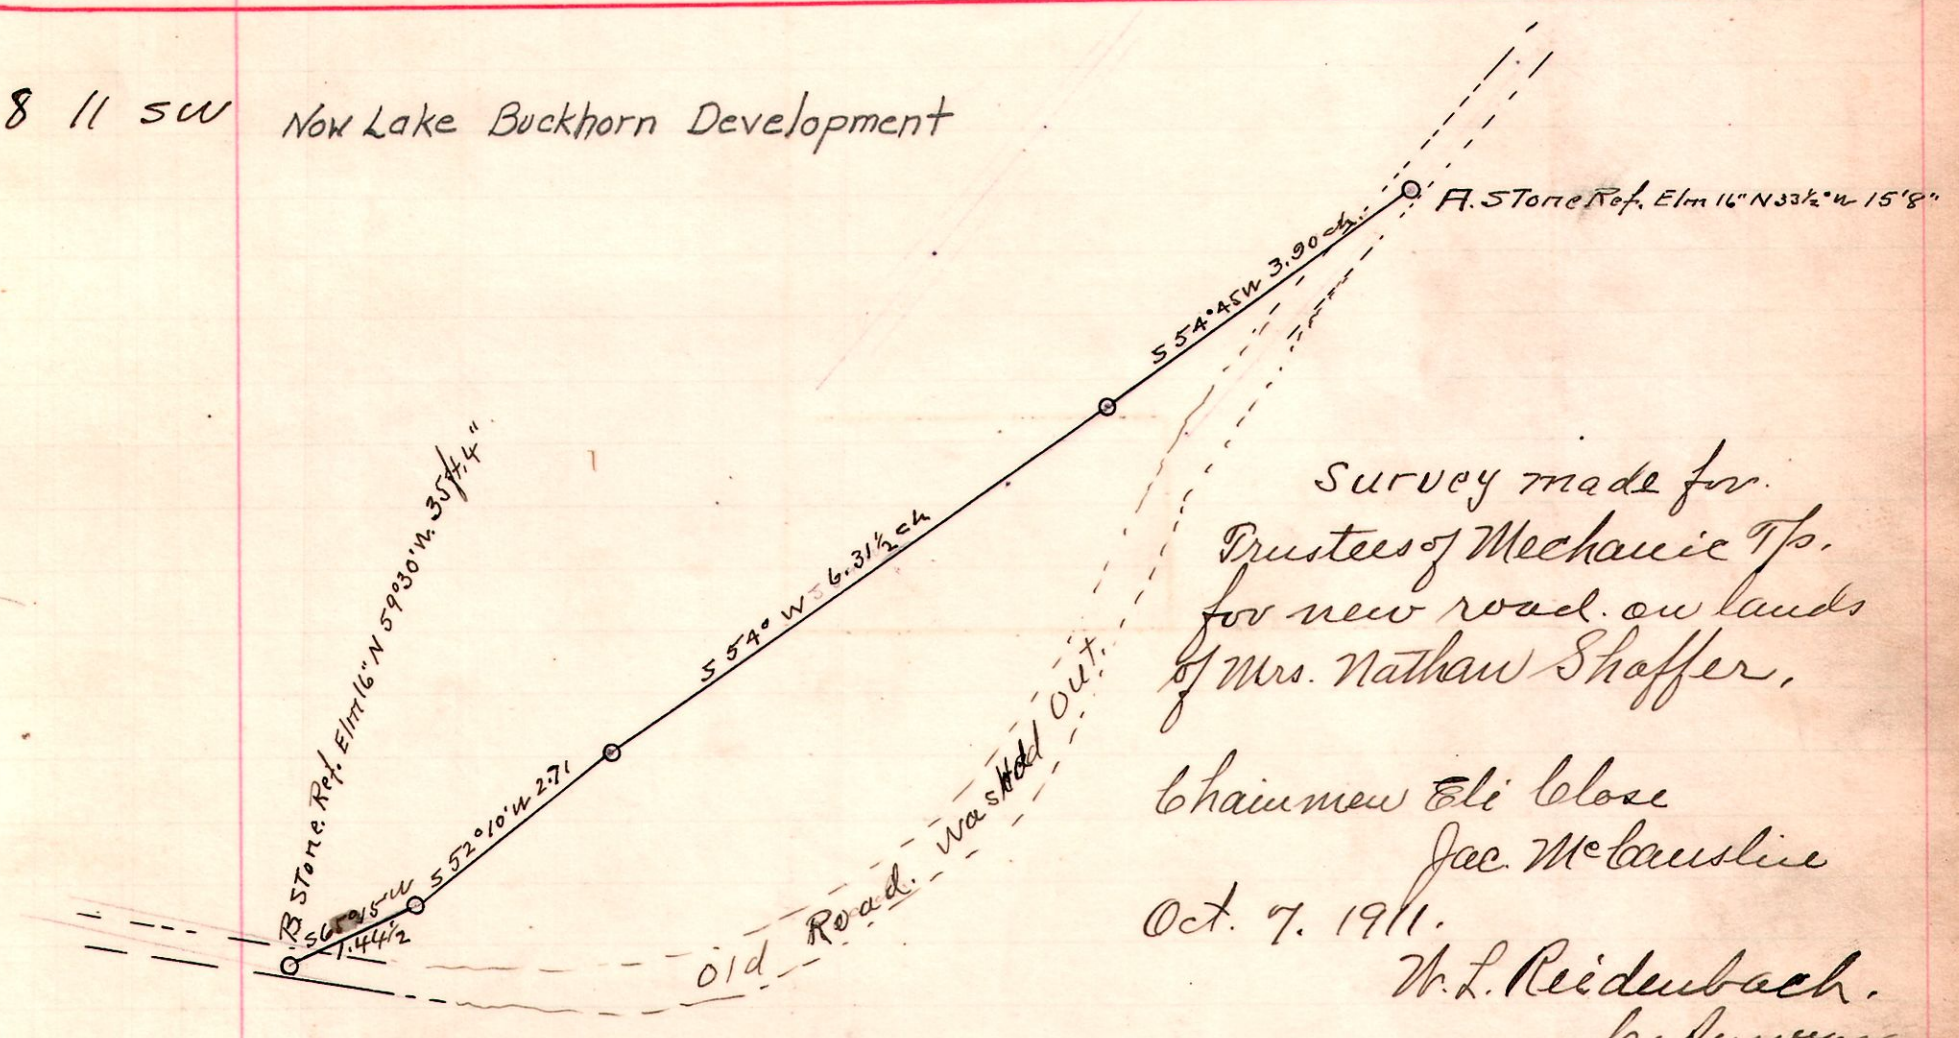 8 11 SW Now Lake Buckhorn Development
A. Stone Ref. Elm 16" N 33½° W 15'8"
S 54° 45 W 3.90 ch.
S 54° W 6.31½ ch
S 52° 10' W 2.71
S 65° 15 W
1.44½
B. Stone. Ref. Elm 16" N 59° 30' W. 35 ft. 4"
Old Road. Washed Out.
Survey made for.
Trustees of Mechanic Tp.
for new road. on lands
of Mrs. Nathan Shaffer.
Chainmen Eli Close
Jac. McCauslin
Oct. 7. 1911.
W. L. Reidenbach.